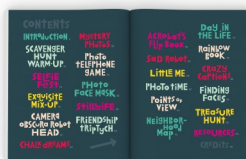 CONTENTS
INTRODUCTION.
SCAVENGER
HUNT
WARM-UP.
SELFIE
FEST.
EXQUISITE
MIX-UP.
CAMERA
OBSCURA ROBOT
HEAD.
CHALK DREAMS.
MYSTERY
PHOTOS.
PHOTO
TELEPHONE
GAME.
PHOTO
FACE MASK.
STILL LIFE.
FRIENDSHIP
TRIPTYCH.
ACROBATS
FLIP BOOK.
SAD ROBOT.
LITTLE ME.
PHOTO TIME.
POINTS OF
VIEW
NEIGHBOR-
HOOD
MAP
DAY IN
THE LIFE.
RAINBOW
BOOK.
CRAZY
CAPTIONS.
FINDING
FACES
TREASURE
HUNT.
RESOURCES.
CREDITS.